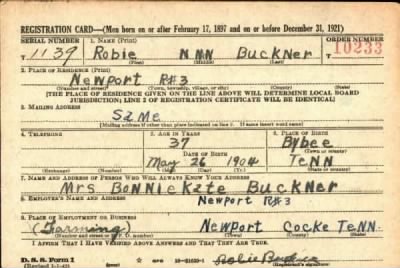 REGISTRATION CARD—(Men born on or after February 17, 1897 and on or before December 31, 1921)
SERIAL NUMBER 1. NAME (Print) ORDER NUMBER
T 1139 Robie NNN Buckner 10233
(First) (Middle) (Last)
2. PLACE OF RESIDENCE (Print)
Newport R#3
(Number and street) (Town, township, village, or city) (County) (State)
[THE PLACE OF RESIDENCE GIVEN ON THE LINE ABOVE WILL DETERMINE LOCAL BOARD
JURISDICTION; LINE 2 OF REGISTRATION CERTIFICATE WILL BE IDENTICAL]
3. MAILING ADDRESS
Same
[Mailing address if other than place indicated on line 2. If same insert word same]
4. TELEPHONE 5. AGE IN YEARS 6. PLACE OF BIRTH
37 Bybee
DATE OF BIRTH (Town or county)
May 26 1904 Tenn
(Exchange) (Number) (Mo.) (Day) (Yr.) (State or country)
7. NAME AND ADDRESS OF PERSON WHO WILL ALWAYS KNOW YOUR ADDRESS
Mrs Bonnie Kate Buckner
8. EMPLOYER'S NAME AND ADDRESS
Newport R#3
9. PLACE OF EMPLOYMENT OR BUSINESS
(Farming) Newport Cocke Tenn.
(Number and street or R. F. D. number) (Town) (County) (State)
I AFFIRM THAT I HAVE VERIFIED ABOVE ANSWERS AND THAT THEY ARE TRUE.
D. S. S. Form 1 Robie Buckner
(Registrant's signature)